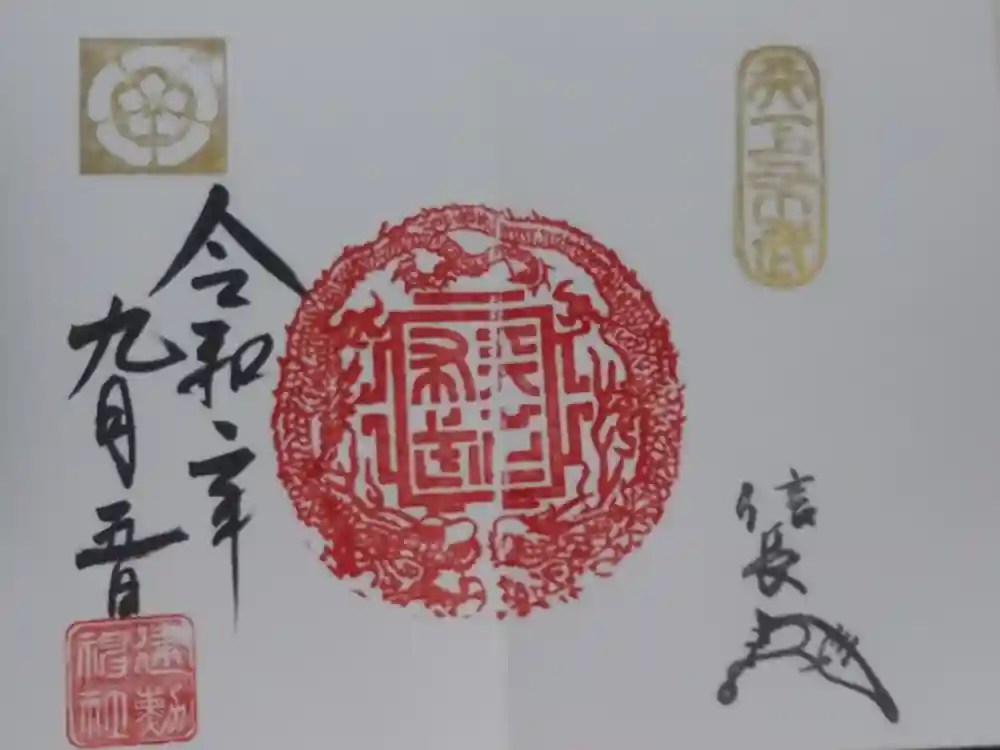 天下布武
信長
天下布武
令和二年
九月五日
建勲神社